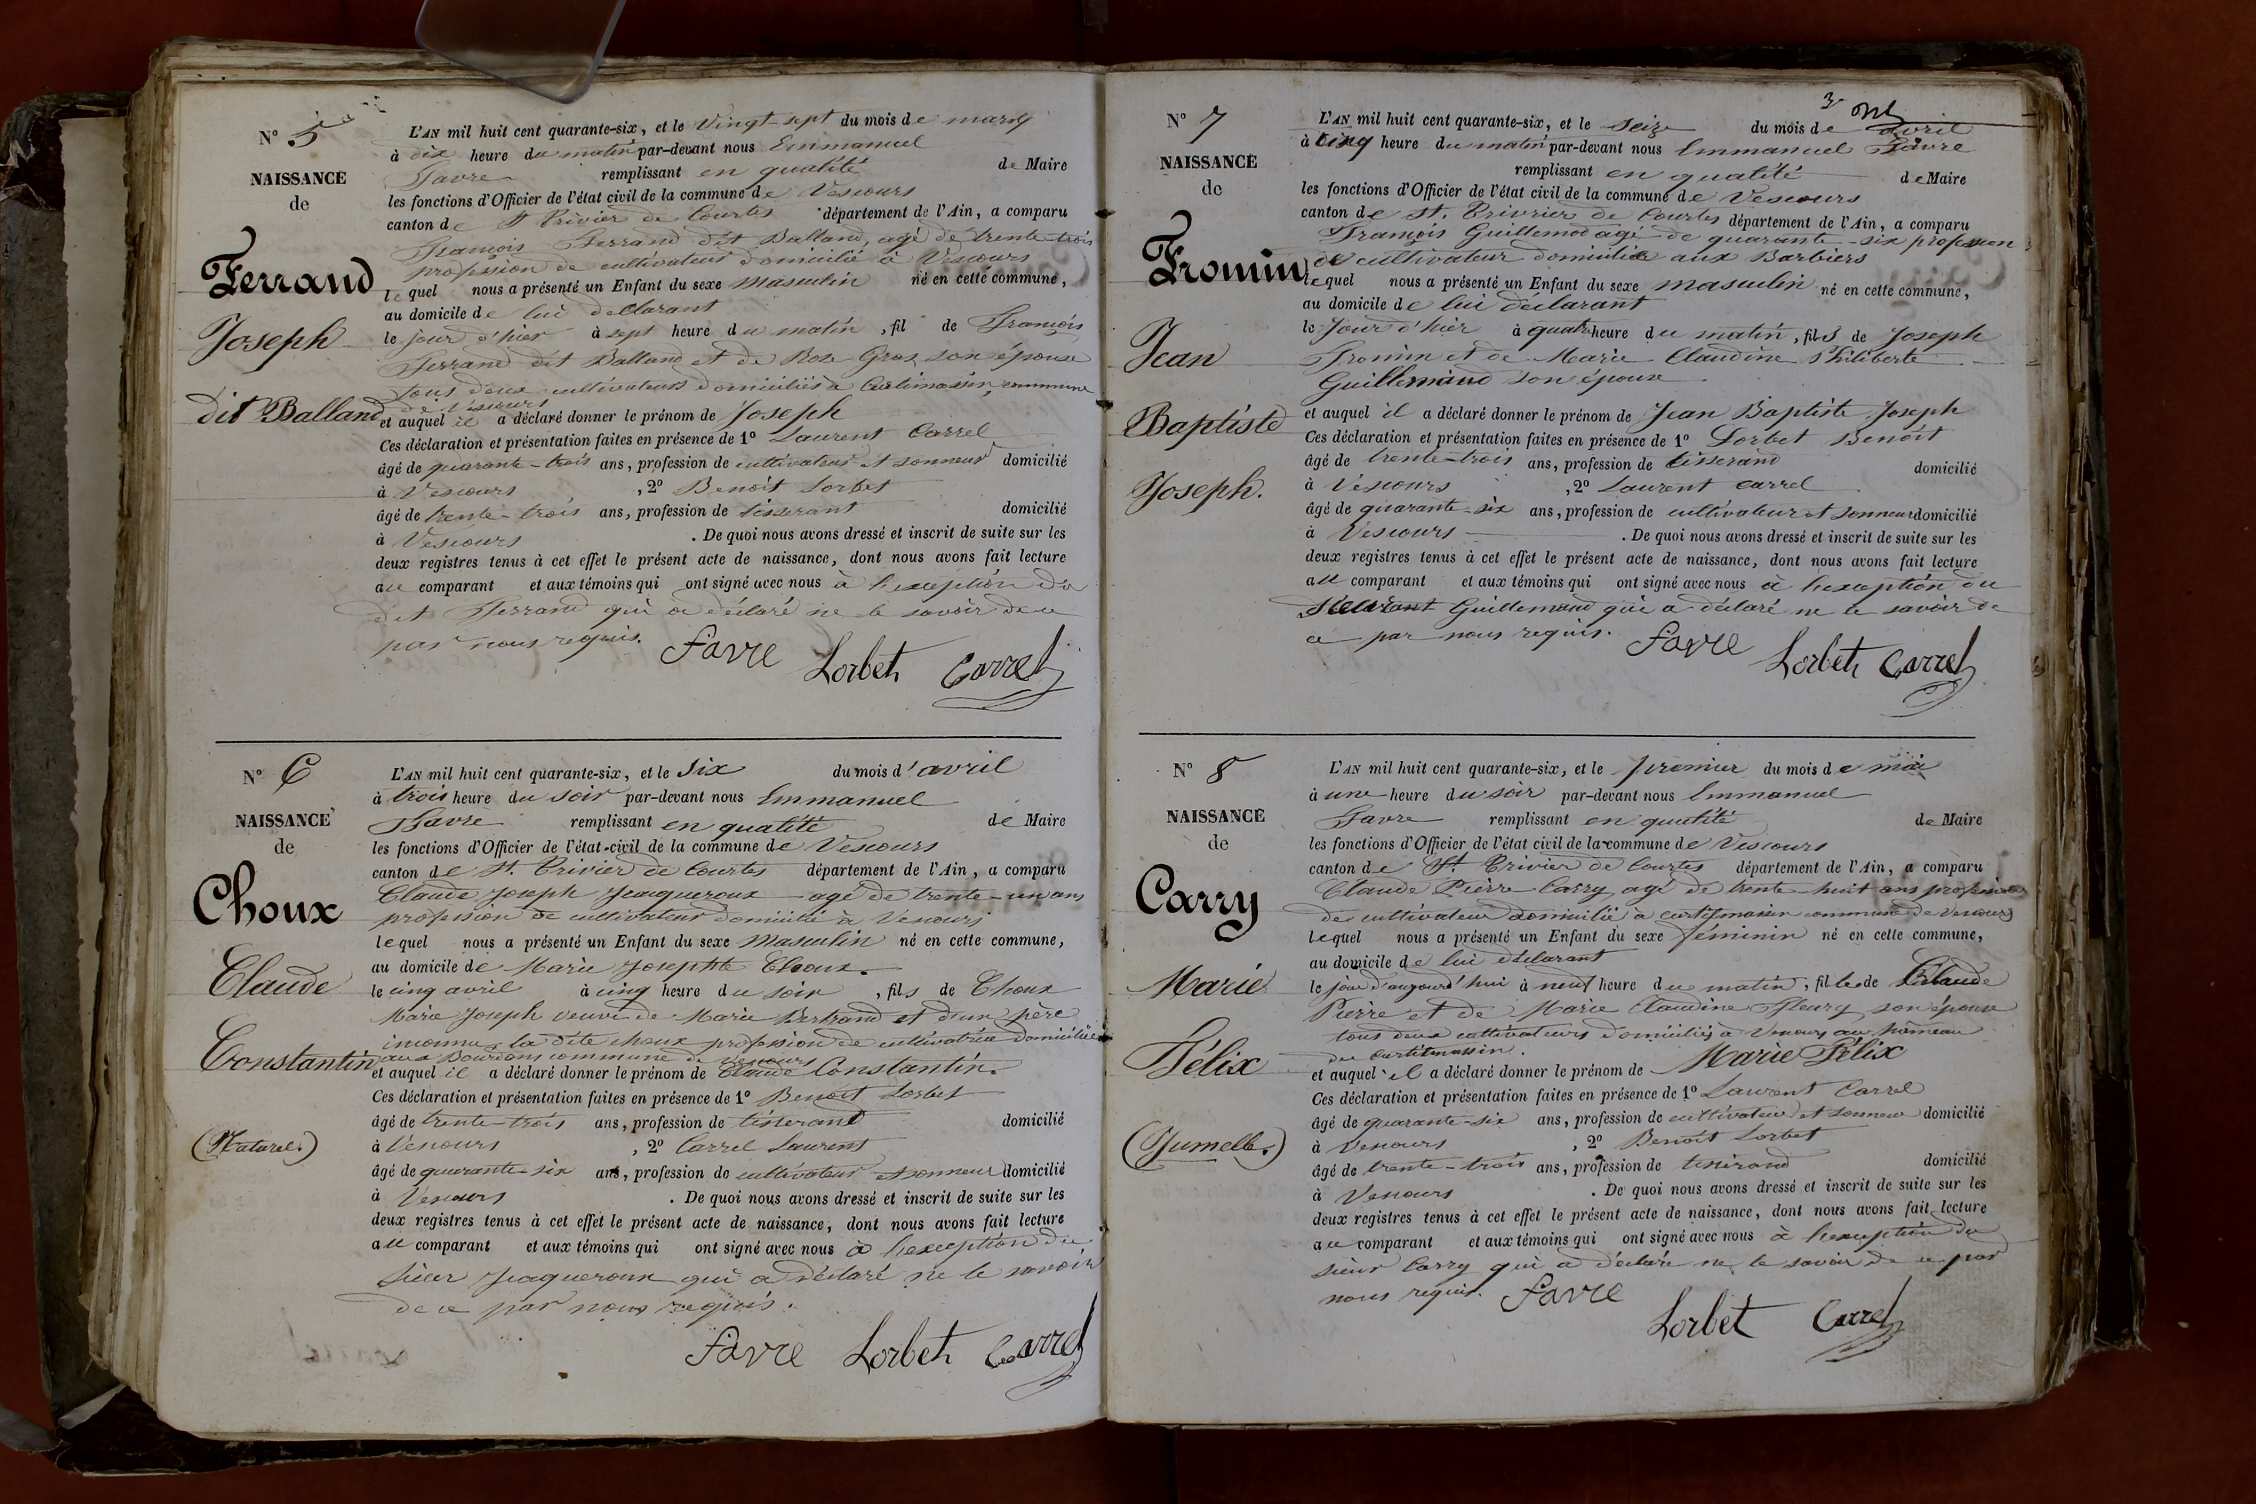 N° 5
NAISSANCE
de
Ferrand
Joseph
dit Balland
L'AN mil huit cent quarante-six, et le Vingt-sept du mois de mars
à dix heure du matin par-devant nous Emmanuel
Favre remplissant en qualité de Maire
les fonctions d'Officier de l'état civil de la commune de Vescours
canton de St Trivier de Courtes département de l'Ain, a comparu
François Ferrand dit Balland, agé de trente-trois
profession de cultivateur domicilié à Vescours
lequel nous a présenté un Enfant du sexe masculin né en cette commune,
au domicile de lui déclarant
le jour d'hier à sept heure du matin, fil de François
Ferrand dit Balland et de Rose Gros son épouse
tous deux cultivateurs domiciliés à Curtimassin, commune
de Vescours
et auquel il a déclaré donner le prénom de Joseph
Ces déclaration et présentation faites en présence de 1° Laurent Carrel
âgé de quarante-trois ans, profession de cultivateur et sonneur domicilié
à Vescours, 2° Benoit Lorbet
âgé de trente-trois ans, profession de tisserant domicilié
à Vescours. De quoi nous avons dressé et inscrit de suite sur les
deux registres tenus à cet effet le présent acte de naissance, dont nous avons fait lecture
au comparant et aux témoins qui ont signé avec nous à l'exception du
dit Ferrand qui a déclaré ne le savoir de ce
par nous requis. Favre Lorbet Carrel
N° 6
NAISSANCE
de
Choux
Claude
Constantin
(Naturel.)
L'AN mil huit cent quarante-six, et le Six du mois d'avril
à trois heure du soir par-devant nous Emmanuel
Favre remplissant en qualité de Maire
les fonctions d'Officier de l'état-civil de la commune de Vescours
canton de St. Trivier de Courtes département de l'Ain, a comparu
Claude Joseph Jeaqueroux agé de trente-un ans
profession de cultivateur domicilié à Vescours
lequel nous a présenté un Enfant du sexe Masculin né en cette commune,
au domicile de Marie Josephte Choux.
le cinq avril à cinq heure du soir, fils de Choux
Marie Joseph veuve de Marie Bertrand et d'un père
inconnu, la dite choux profession de cultivatrice domiciliée
aux Bourdons commune de Vescours
et auquel il a déclaré donner le prénom de Claude Constantin.
Ces déclaration et présentation faites en présence de 1° Benoit Lorbet
âgé de trente-trois ans, profession de tisserand domicilié
à Vescours, 2° Carrel Laurent
âgé de quarante-six ans, profession de cultivateur et sonneur domicilié
à Vescours. De quoi nous avons dressé et inscrit de suite sur les
deux registres tenus à cet effet le présent acte de naissance, dont nous avons fait lecture
au comparant et aux témoins qui ont signé avec nous à l'exception du
Sieur Jeaqueroux qui a déclaré ne le savoir
de ce par nous requis.
Favre Lorbet Carrel
3
N° 7
NAISSANCE
de
Fromin
Jean
Baptiste
Joseph.
L'AN mil huit cent quarante-six, et le seize du mois de avril
à cinq heure du matin par-devant nous Emmanuel Favre
remplissant en qualité de Maire
les fonctions d'Officier de l'état civil de la commune de Vescours
canton de St. Trivrier de Courtes département de l'Ain, a comparu
François Guillemod agé de quarante-six profession
de cultivateur domicilié aux Barbiers
lequel nous a présenté un Enfant du sexe masculin né en cette commune,
au domicile de lui déclarant
le Jour d'hier à quatre heure du matin, fils de Joseph
Fromin et de Marie Claudine Philiberte
Guillemaud son épouse
et auquel il a déclaré donner le prénom de Jean Baptiste Joseph
Ces déclaration et présentation faites en présence de 1° Lorbet Benoit
âgé de trente-trois ans, profession de tisserand domicilié
à Vescours, 2° Laurent Carrel
âgé de quarante-six ans, profession de cultivateur et sonneur domicilié
à Vescours. De quoi nous avons dressé et inscrit de suite sur les
deux registres tenus à cet effet le présent acte de naissance, dont nous avons fait lecture
au comparant et aux témoins qui ont signé avec nous à l'exception du
Guillemaud qui a déclaré ne le savoir de
ce par nous requis. Favre Lorbet Carrel
N° 8
NAISSANCE
de
Carry
Marie
Félix
(Jumelle.)
L'AN mil huit cent quarante-six, et le premier du mois de mai
à une heure du soir par-devant nous Emmanuel
Favre remplissant en qualité de Maire
les fonctions d'Officier de l'état civil de la commune de Vescours
canton de St. Trivier de Courtes département de l'Ain, a comparu
Claude Pierre Carry agé de trente-huit ans profession
de cultivateur domicilié à curtismassin commune de Vescours
lequel nous a présenté un Enfant du sexe féminin né en cette commune,
au domicile de lui déclarant
le jour d'aujourd'hui à neuf heure du matin, fille de Claude
Pierre et de Marie Claudine Fleury son épouse
tous deux cultivateurs domiciliés à Vescours au hameau
du curtitmassin.
et auquel il a déclaré donner le prénom de Marie Félix
Ces déclaration et présentation faites en présence de 1° Laurent Carrel
âgé de quarante-six ans, profession de cultivateur et sonneur domicilié
à Vescours, 2° Benoit Lorbet
âgé de trente-trois ans, profession de tisserand domicilié
à Vescours. De quoi nous avons dressé et inscrit de suite sur les
deux registres tenus à cet effet le présent acte de naissance, dont nous avons fait lecture
au comparant et aux témoins qui ont signé avec nous à l'exception du
sieur Carry qui a déclaré ne le savoir de ce par
nous requis. Favre
Lorbet Carrel